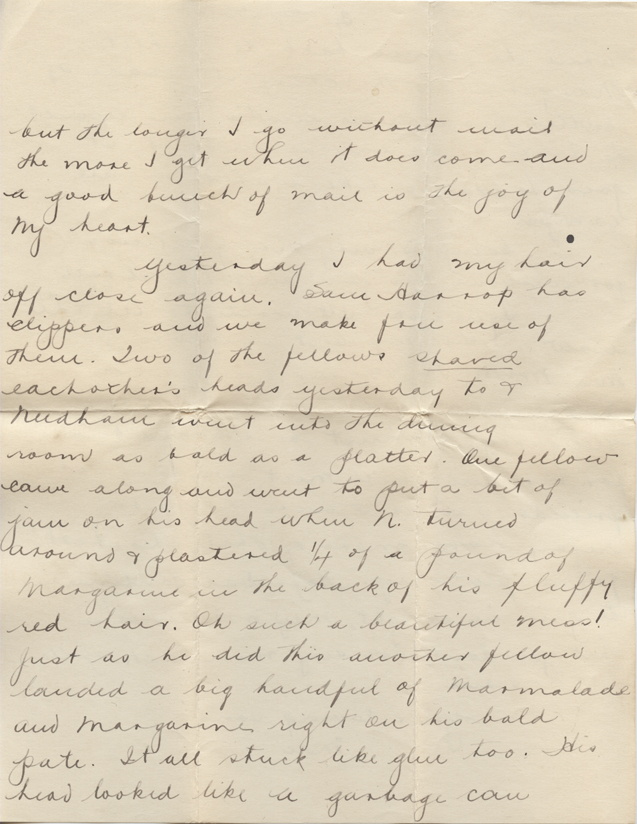 but the longer I go without mail
the more I get when it does come and
a good bunch of mail is the joy of
my heart.
Yesterday I had my hair
off close again. Sam Harrop has
clippers and we make free use of
them. Two of the fellows shaved
eachother's heads yesterday to &
Needham went into the dining
room as bald as a platter. One fellow
came along and went to put a bit of
jam on his head when N. turned
around & plastered 1/4 of a pound of
Margarine in the back of his fluffy
red hair. Oh such a beautiful mess!
Just as he did this another fellow
landed a big handful of Marmalade
and Margarine right on his bald
pate. It all stuck like glue too. His
head looked like a garbage can